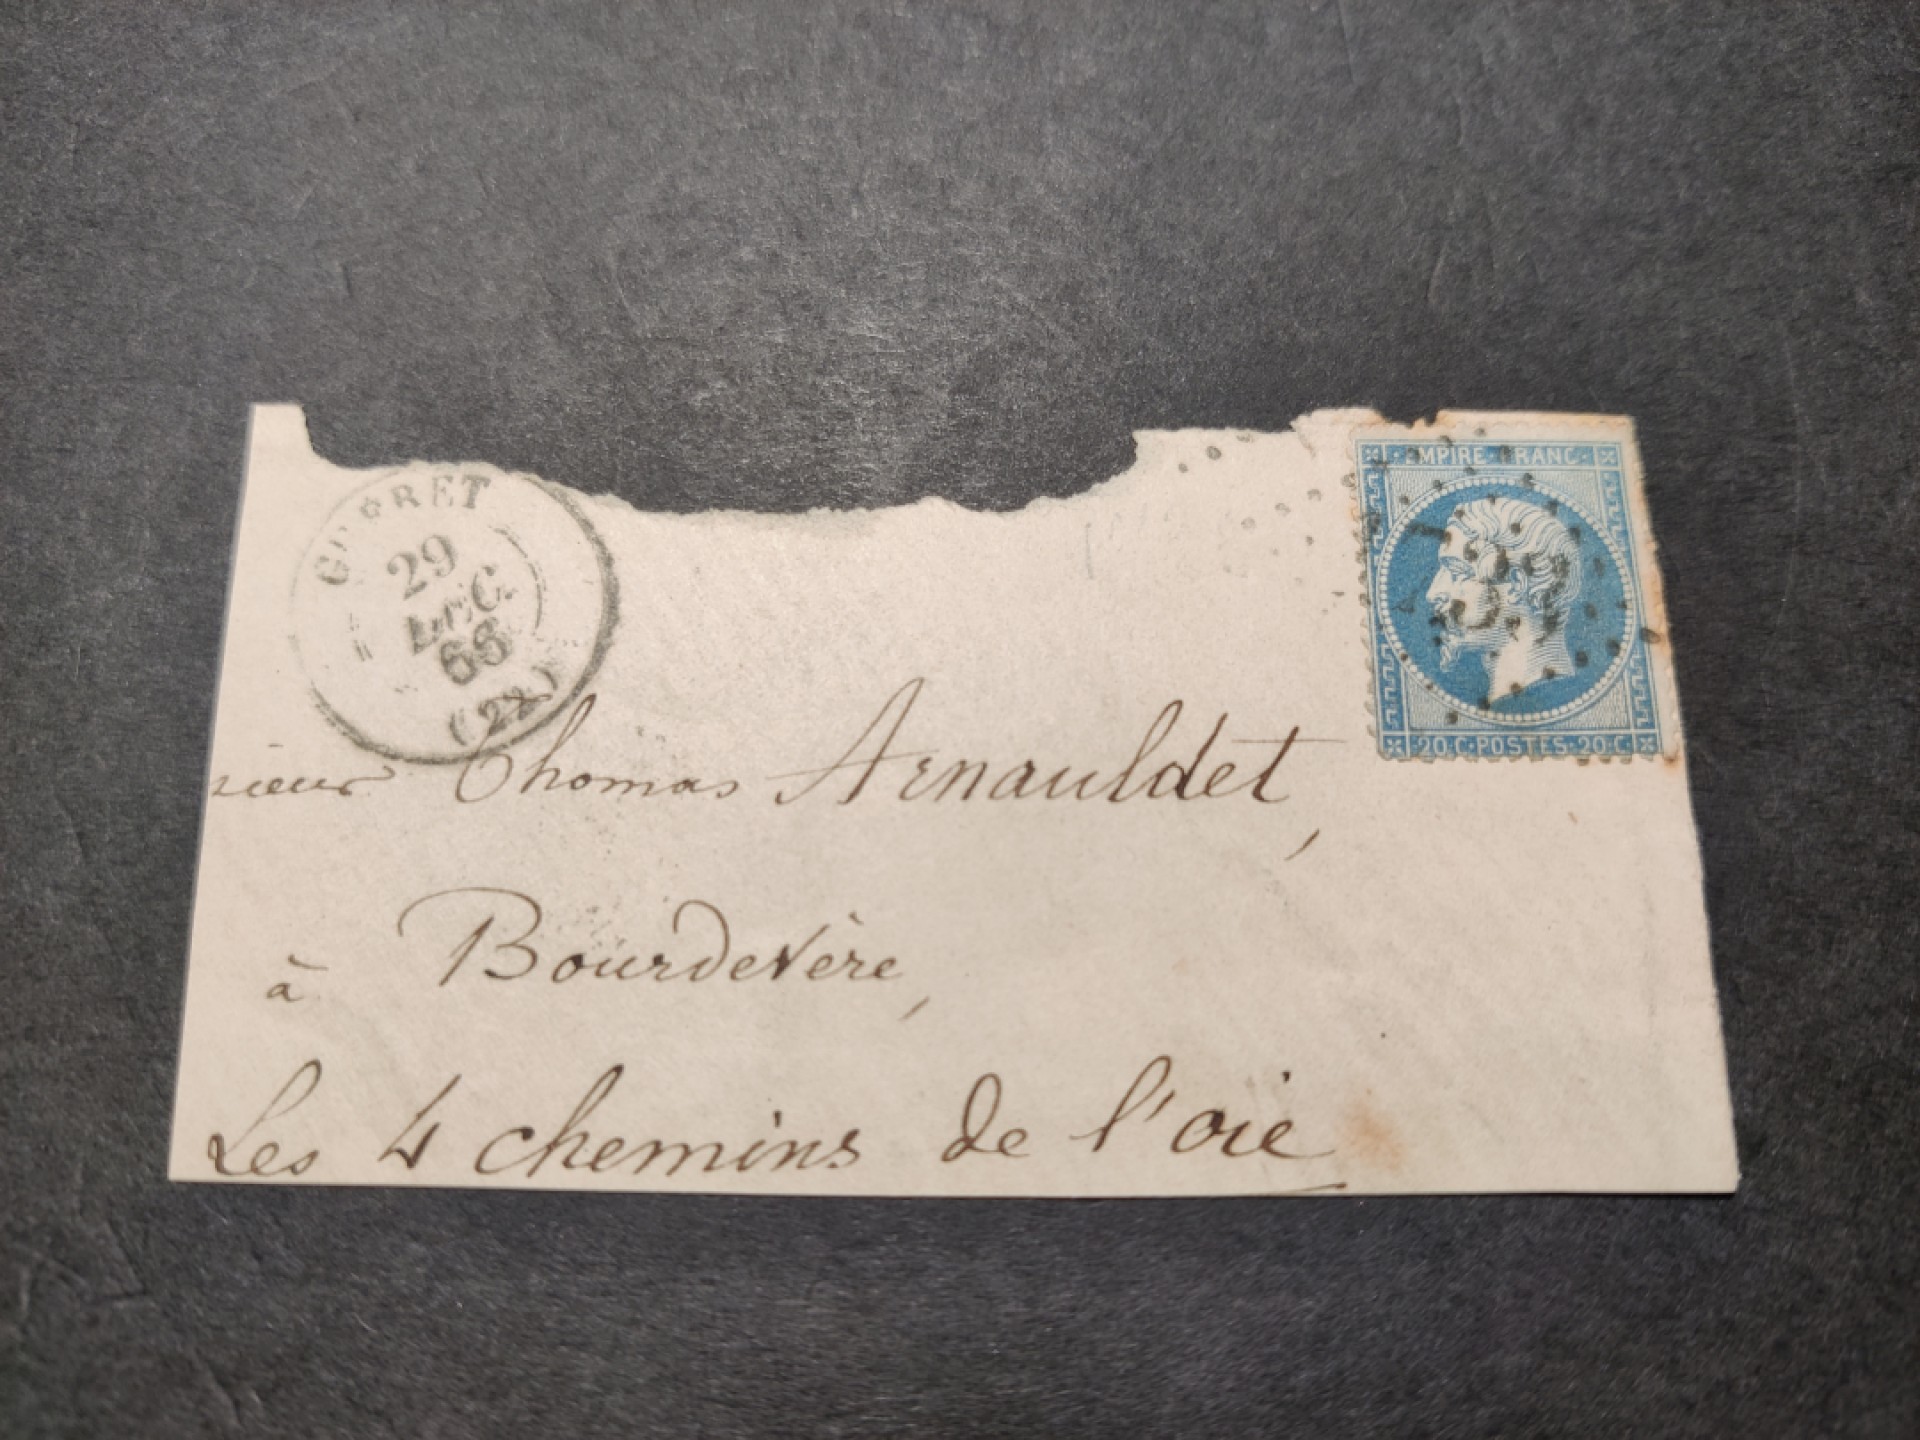 29
DEC.
68
(2X)
EMPIRE FRANC.
33
20.C.POSTES.20.C
sieur Thomas Arnauldet,
à Bourdevère,
Les 4 chemins de l'oie